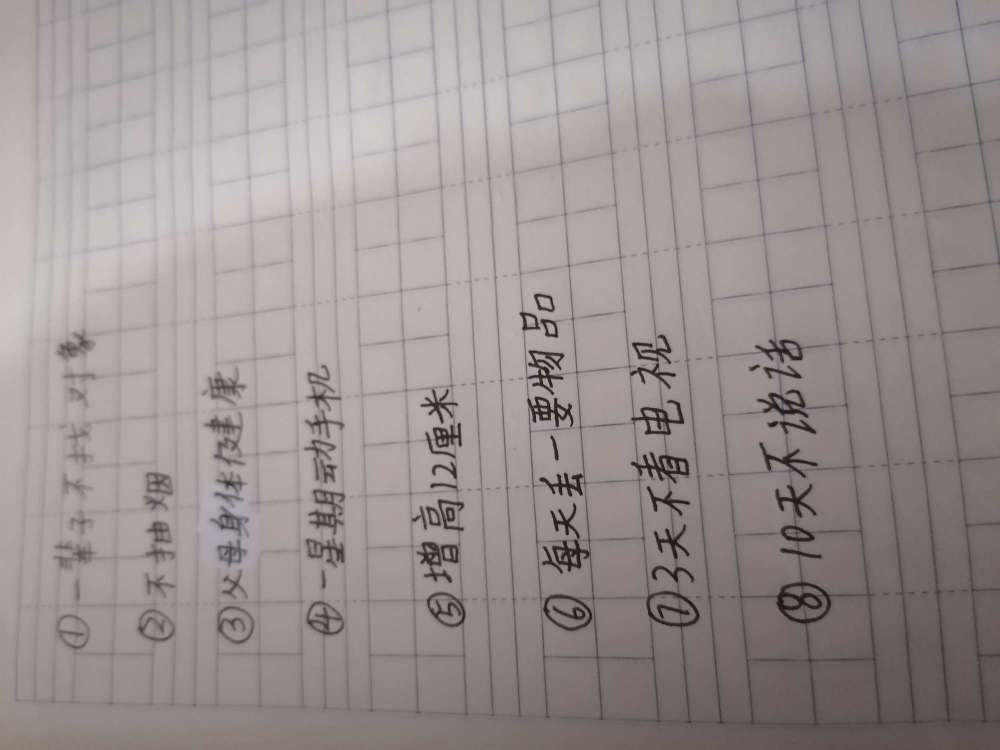 ①一辈子不找对象
②不抽烟
③父母身体健康
④一星期动手机
⑤增高12厘米
⑥每天丢一要物品
⑦3天不看电视
⑧10天不说话